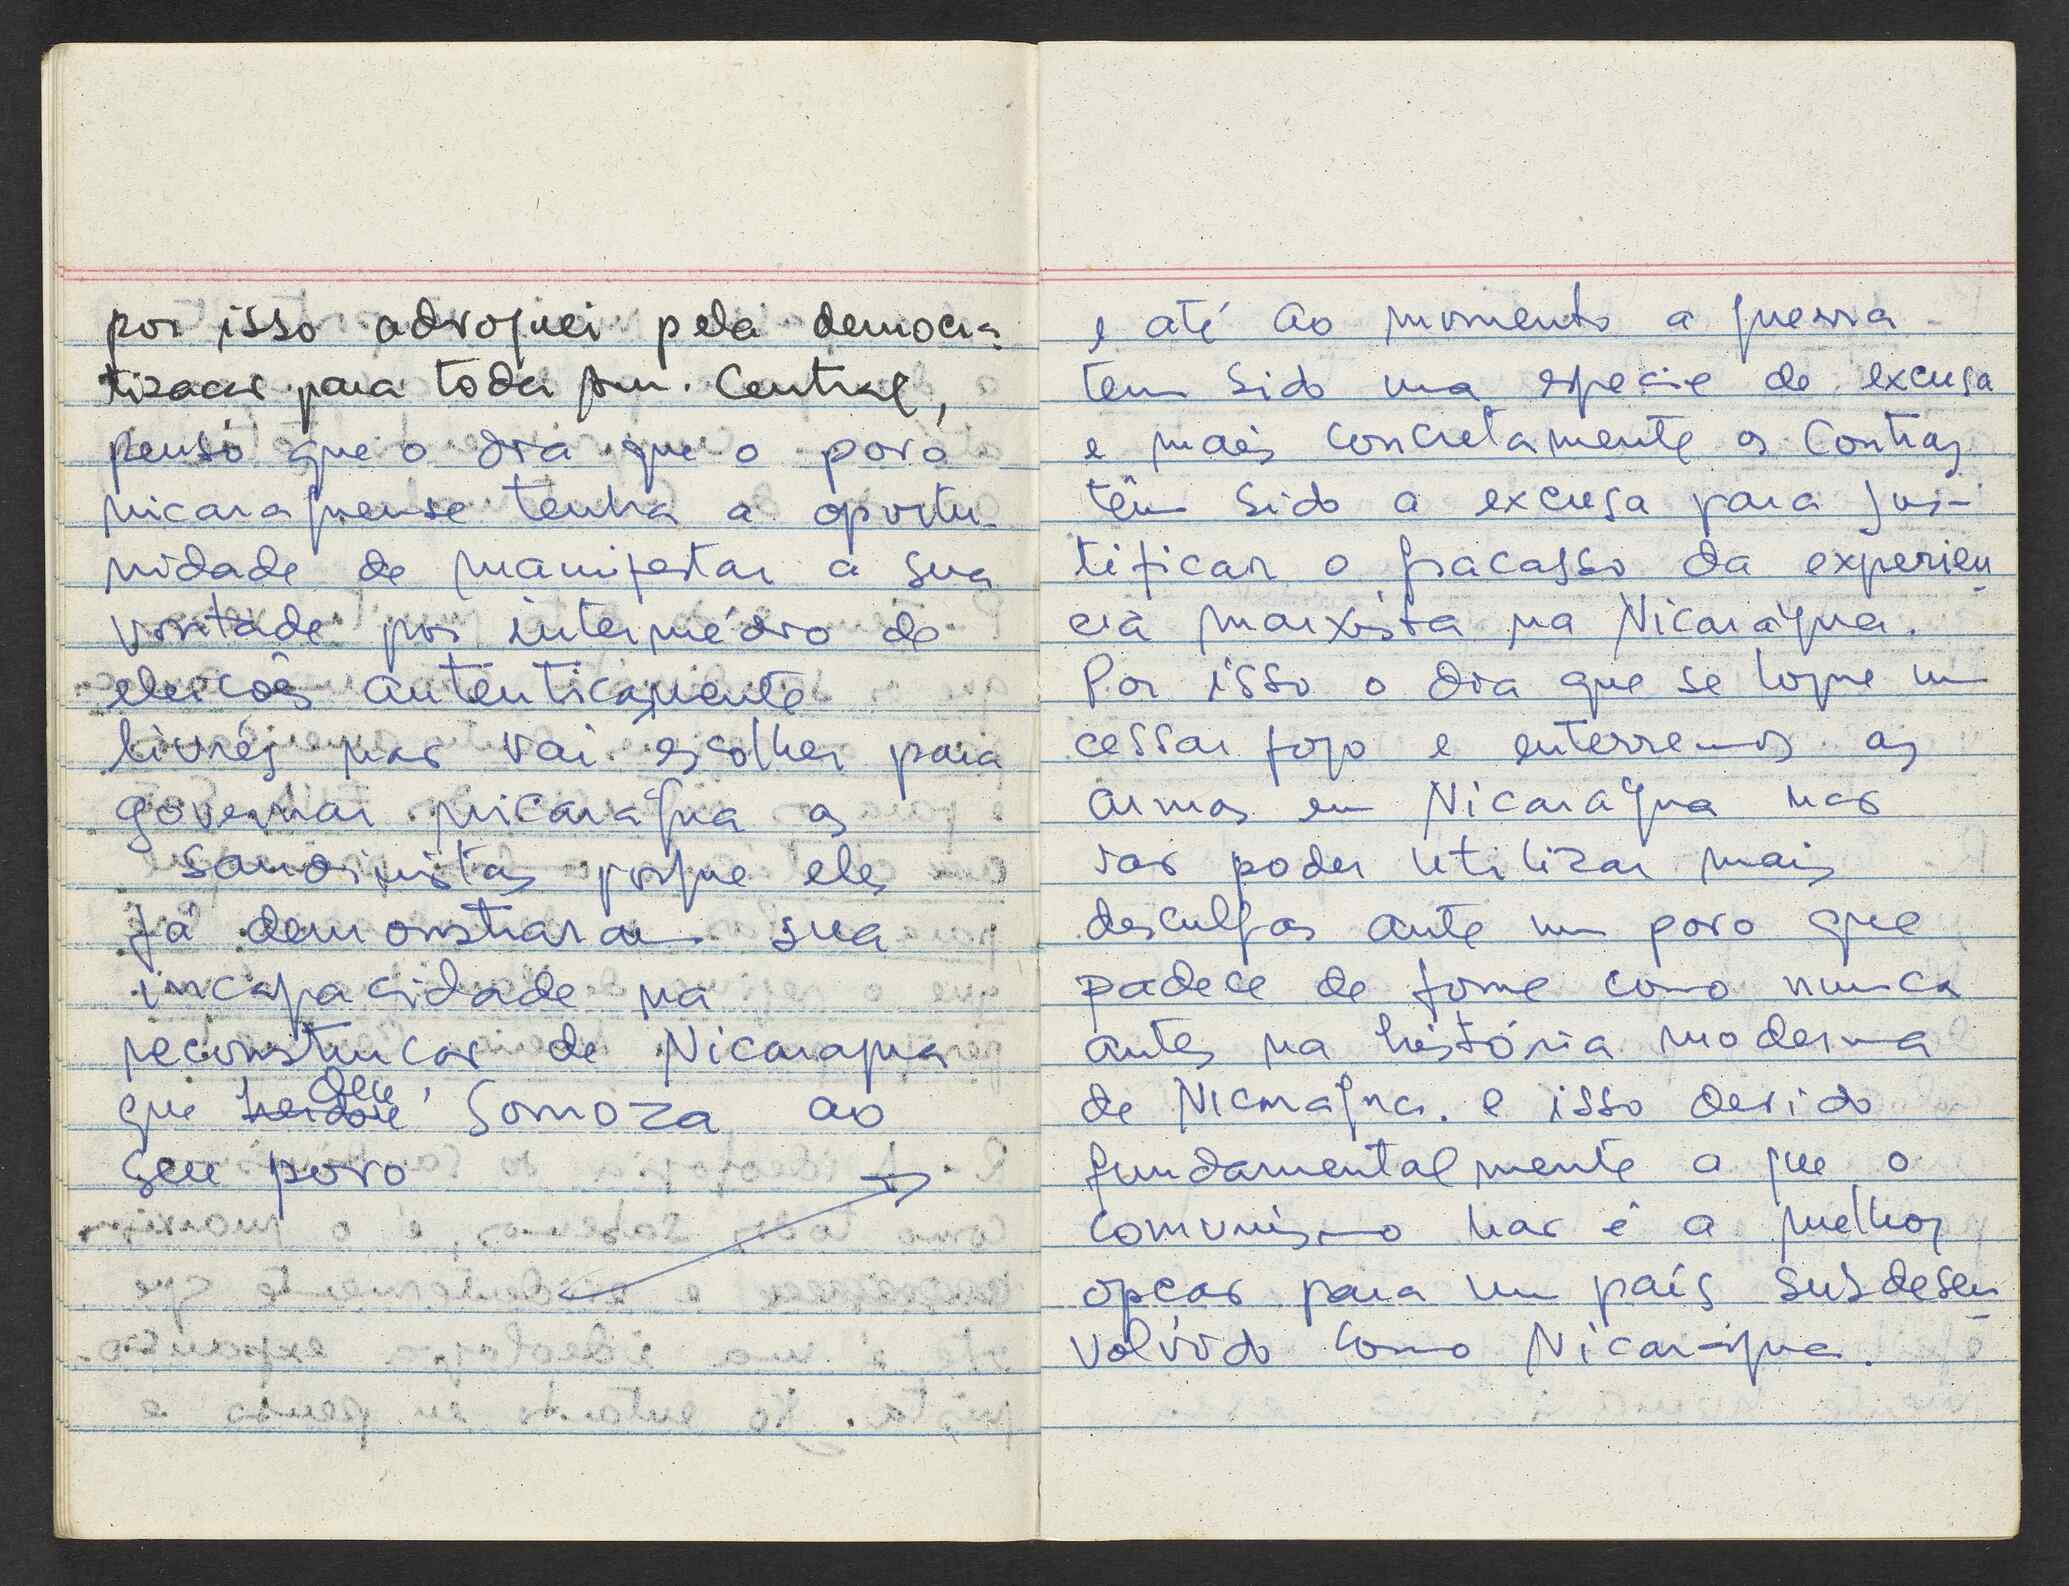 por isso advoguei pela democra-
tizacao para toda Am. Central,
penso que o dia que o povo
nicaraguense tenha a oportu-
nidade de manifestar a sua
vontade por intermédio de
eleicoês autenticamente
livres nao vai escolher para
governar nicarágua os
sandinistas porque eles
já demonstraram sua
incapacidade na
reconstrucao de Nicaragua
que deu Somoza ao
seu povo
e até ao momento a guerra
tem sido uma especie de excusa
e mais concretamente os Contras
têm sido a excusa para jus-
tificar o fracasso da experien
cia marxista na Nicarágua.
Por isso o dia que se logre um
cessar fogo e enterremos as
armas em Nicarágua nao
vao poder utilizar mais
desculpas ante um povo que
padece de fome como nunca
antes na história moderna
de Nicaragua. e isso devido
fundamentalmente a que o
comunismo nao é a melhor
opcao para um país subdesen
volvido como Nicaragua.